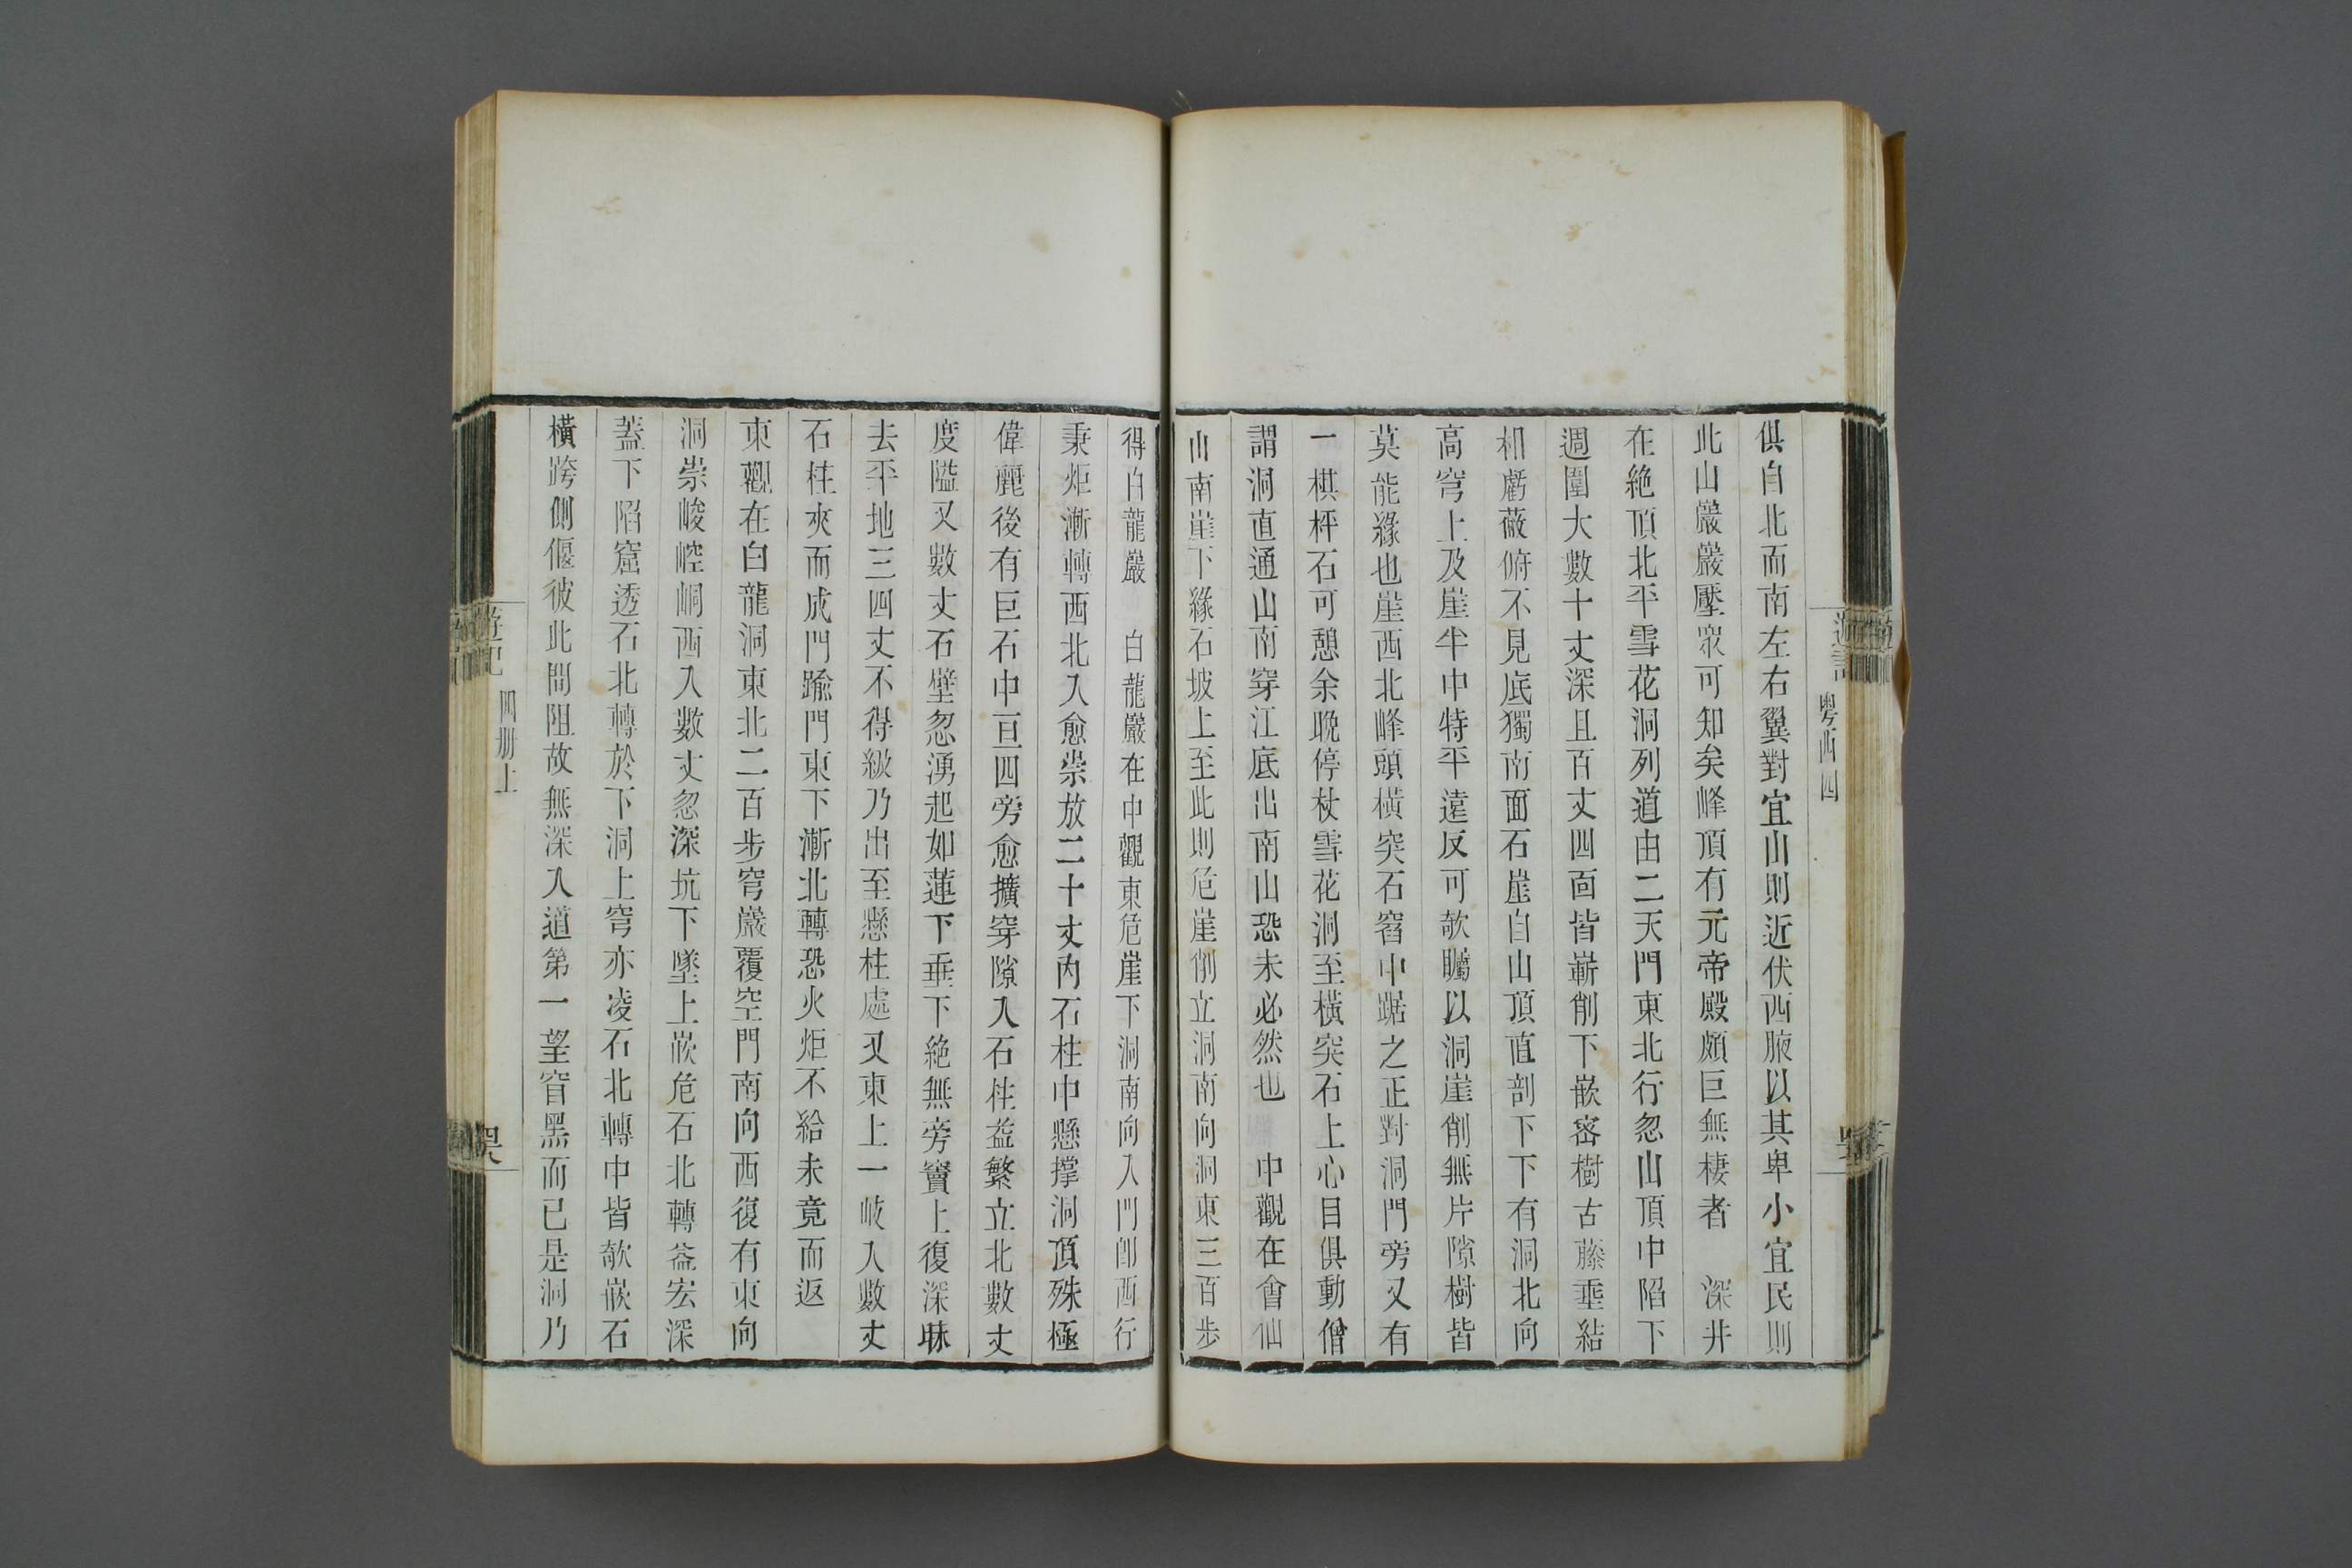 粤西四
俱自北而南左右翼對宜山則近伏西腋以其卑小宜民則
此山巖巖壓衆可知矣峰頂有元帝殿頗巨無棲者　深井
在絶頂北平雪花洞列道由二天門東北行忽山頂中陷下
週圍大數十丈深且百丈四面皆嶄削下嵌密樹古藤垂結
相虧蔽俯不見底獨南面石崖自山頂直剖下下有洞北向
高穹上及崖半中特平遠反可欹矚以洞崖削無片隙樹皆
莫能緣也崖西北峰頭横突石窞中踞之正對洞門旁又有
一棋枰石可憩余晚停杖雪花洞至横突石上心目俱動僧
謂洞直通山南穿江底出南山恐未必然也　中觀在會仙
山南崖下緣石坡上至此則危崖削立洞南向洞東三百步
得白龍巖　白龍巖在中觀東危崖下洞南向入門卽西行
秉炬漸轉西北入愈崇放二十丈内石柱中懸撐洞頂殊極
偉麗後有巨石中亘四旁愈擴穿隙入石柱益繁立北數丈
度隘又數丈石壁忽湧起如蓮下垂下絶無旁竇上復深昧
去平地三四丈不得級乃出至懸柱處又東上一岐入數丈
石柱夾而成門踰門東下漸北轉恐火炬不給未竟而返
東觀在白龍洞東北二百步穹巖覆空門南向西復有東向
洞崇峻崆峒西入數丈忽深坑下墜上嵌危石北轉益宏深
蓋下陷窟透石北轉於下洞上穹亦凌石北轉中皆欹嵌石
橫跨側偃彼此間阻故無深入道第一望窅黑而已是洞乃
遊記
四册上